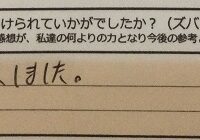 けられていかがでしたか？（ズバ
感想が、私達の何よりの力となり今後の参考
しました。